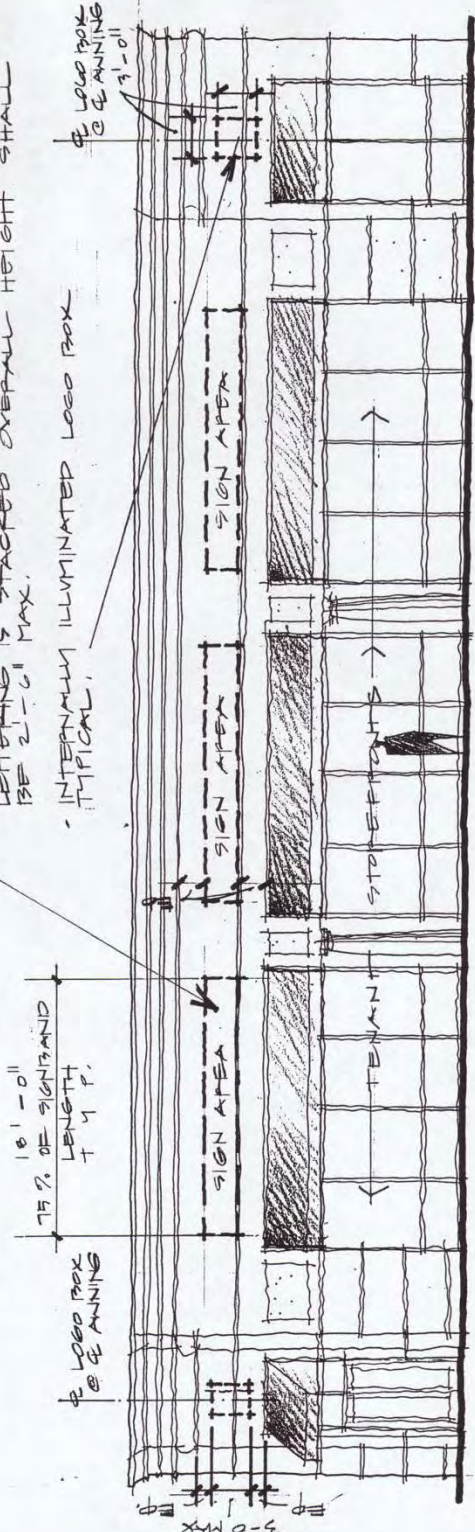 LETTERING IS STACKED OVERALL HEIGHT SHALL
BE 2'-6" MAX.
• INTERNALLY ILLUMINATED LOGO BOX
TYPICAL.
℄ LOGO BOX
@ ℄ AWNING
18'-0"
75% OF SIGNBAND
LENGTH
TYP.
℄ LOGO BOX
@ ℄ AWNING
3'-0"
EQ.
3-0 MAX
EQ.
SIGN AREA
SIGN AREA
SIGN AREA
EQ.
TENANT STOREFRONTS